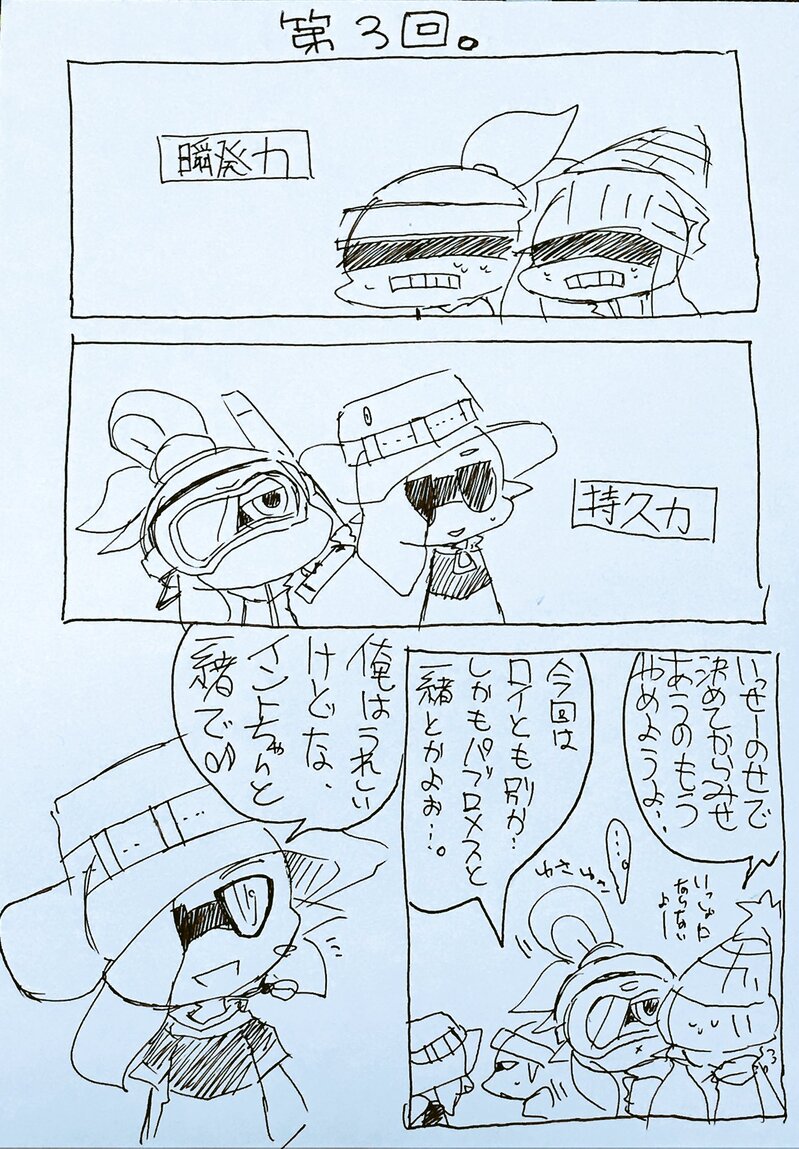 第3回。
瞬発力
持久力
いっせーのせで
決めてからみせ
あうのもう
やめようよ…
…。
ゆさゆさ
いっしょに
ならない
よー
今回は
ロイとも別か…
しかもパブロメスと
一緒とかよぉ…。
俺はうれしい
けどな、
イントちゃんと
一緒で♪